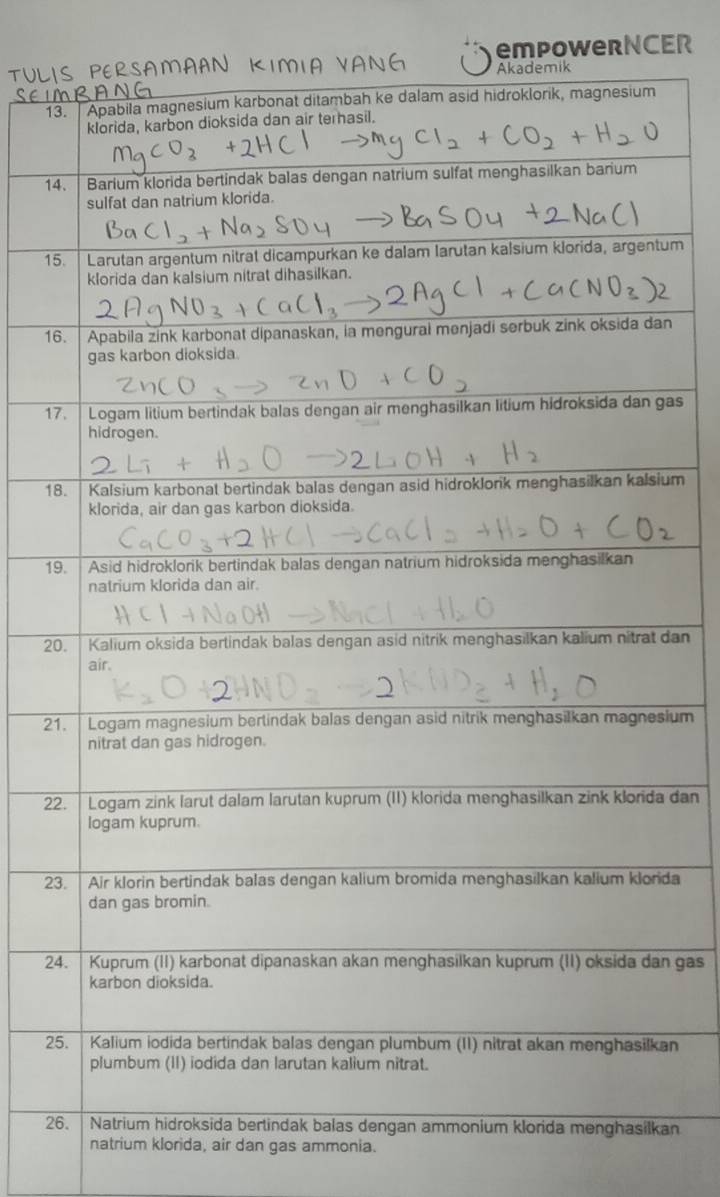 TULIS PERSAMAAN KIMIA YANG
SEIMBANG
empowerNCER
Akademik
13. Apabila magnesium karbonat ditambah ke dalam asid hidroklorik, magnesium
klorida, karbon dioksida dan air terhasil.
MgCO₃ + 2HCl → MgCl₂ + CO₂ + H₂O
14. Barium klorida bertindak balas dengan natrium sulfat menghasilkan barium
sulfat dan natrium klorida.
BaCl₂ + Na₂SO4 → BaSO4 + 2NaCl
15. Larutan argentum nitrat dicampurkan ke dalam larutan kalsium klorida, argentum
klorida dan kalsium nitrat dihasilkan.
2AgNO₃ + CaCl₃ → 2AgCl + Ca(NO₃)2
16. Apabila zink karbonat dipanaskan, ia mengurai menjadi serbuk zink oksida dan
gas karbon dioksida.
ZnCO₃ → ZnO + CO₂
17. Logam litium bertindak balas dengan air menghasilkan litium hidroksida dan gas
hidrogen.
2Li + H₂O → 2LiOH + H₂
18. Kalsium karbonat bertindak balas dengan asid hidroklorik menghasilkan kalsium
klorida, air dan gas karbon dioksida.
CaCO₃ + 2HCl → CaCl₂ + H₂O + CO₂
19. Asid hidroklorik bertindak balas dengan natrium hidroksida menghasilkan
natrium klorida dan air.
HCl + NaOH → NaCl + H₂O
20. Kalium oksida bertindak balas dengan asid nitrik menghasilkan kalium nitrat dan
air.
K₂O + 2HNO₃ → 2KNO₃ + H₂O
21. Logam magnesium bertindak balas dengan asid nitrik menghasilkan magnesium
nitrat dan gas hidrogen.
22. Logam zink larut dalam larutan kuprum (II) klorida menghasilkan zink klorida dan
logam kuprum.
23. Air klorin bertindak balas dengan kalium bromida menghasilkan kalium klorida
dan gas bromin.
24. Kuprum (II) karbonat dipanaskan akan menghasilkan kuprum (II) oksida dan gas
karbon dioksida.
25. Kalium iodida bertindak balas dengan plumbum (II) nitrat akan menghasilkan
plumbum (II) iodida dan larutan kalium nitrat.
26. Natrium hidroksida bertindak balas dengan ammonium klorida menghasilkan
natrium klorida, air dan gas ammonia.